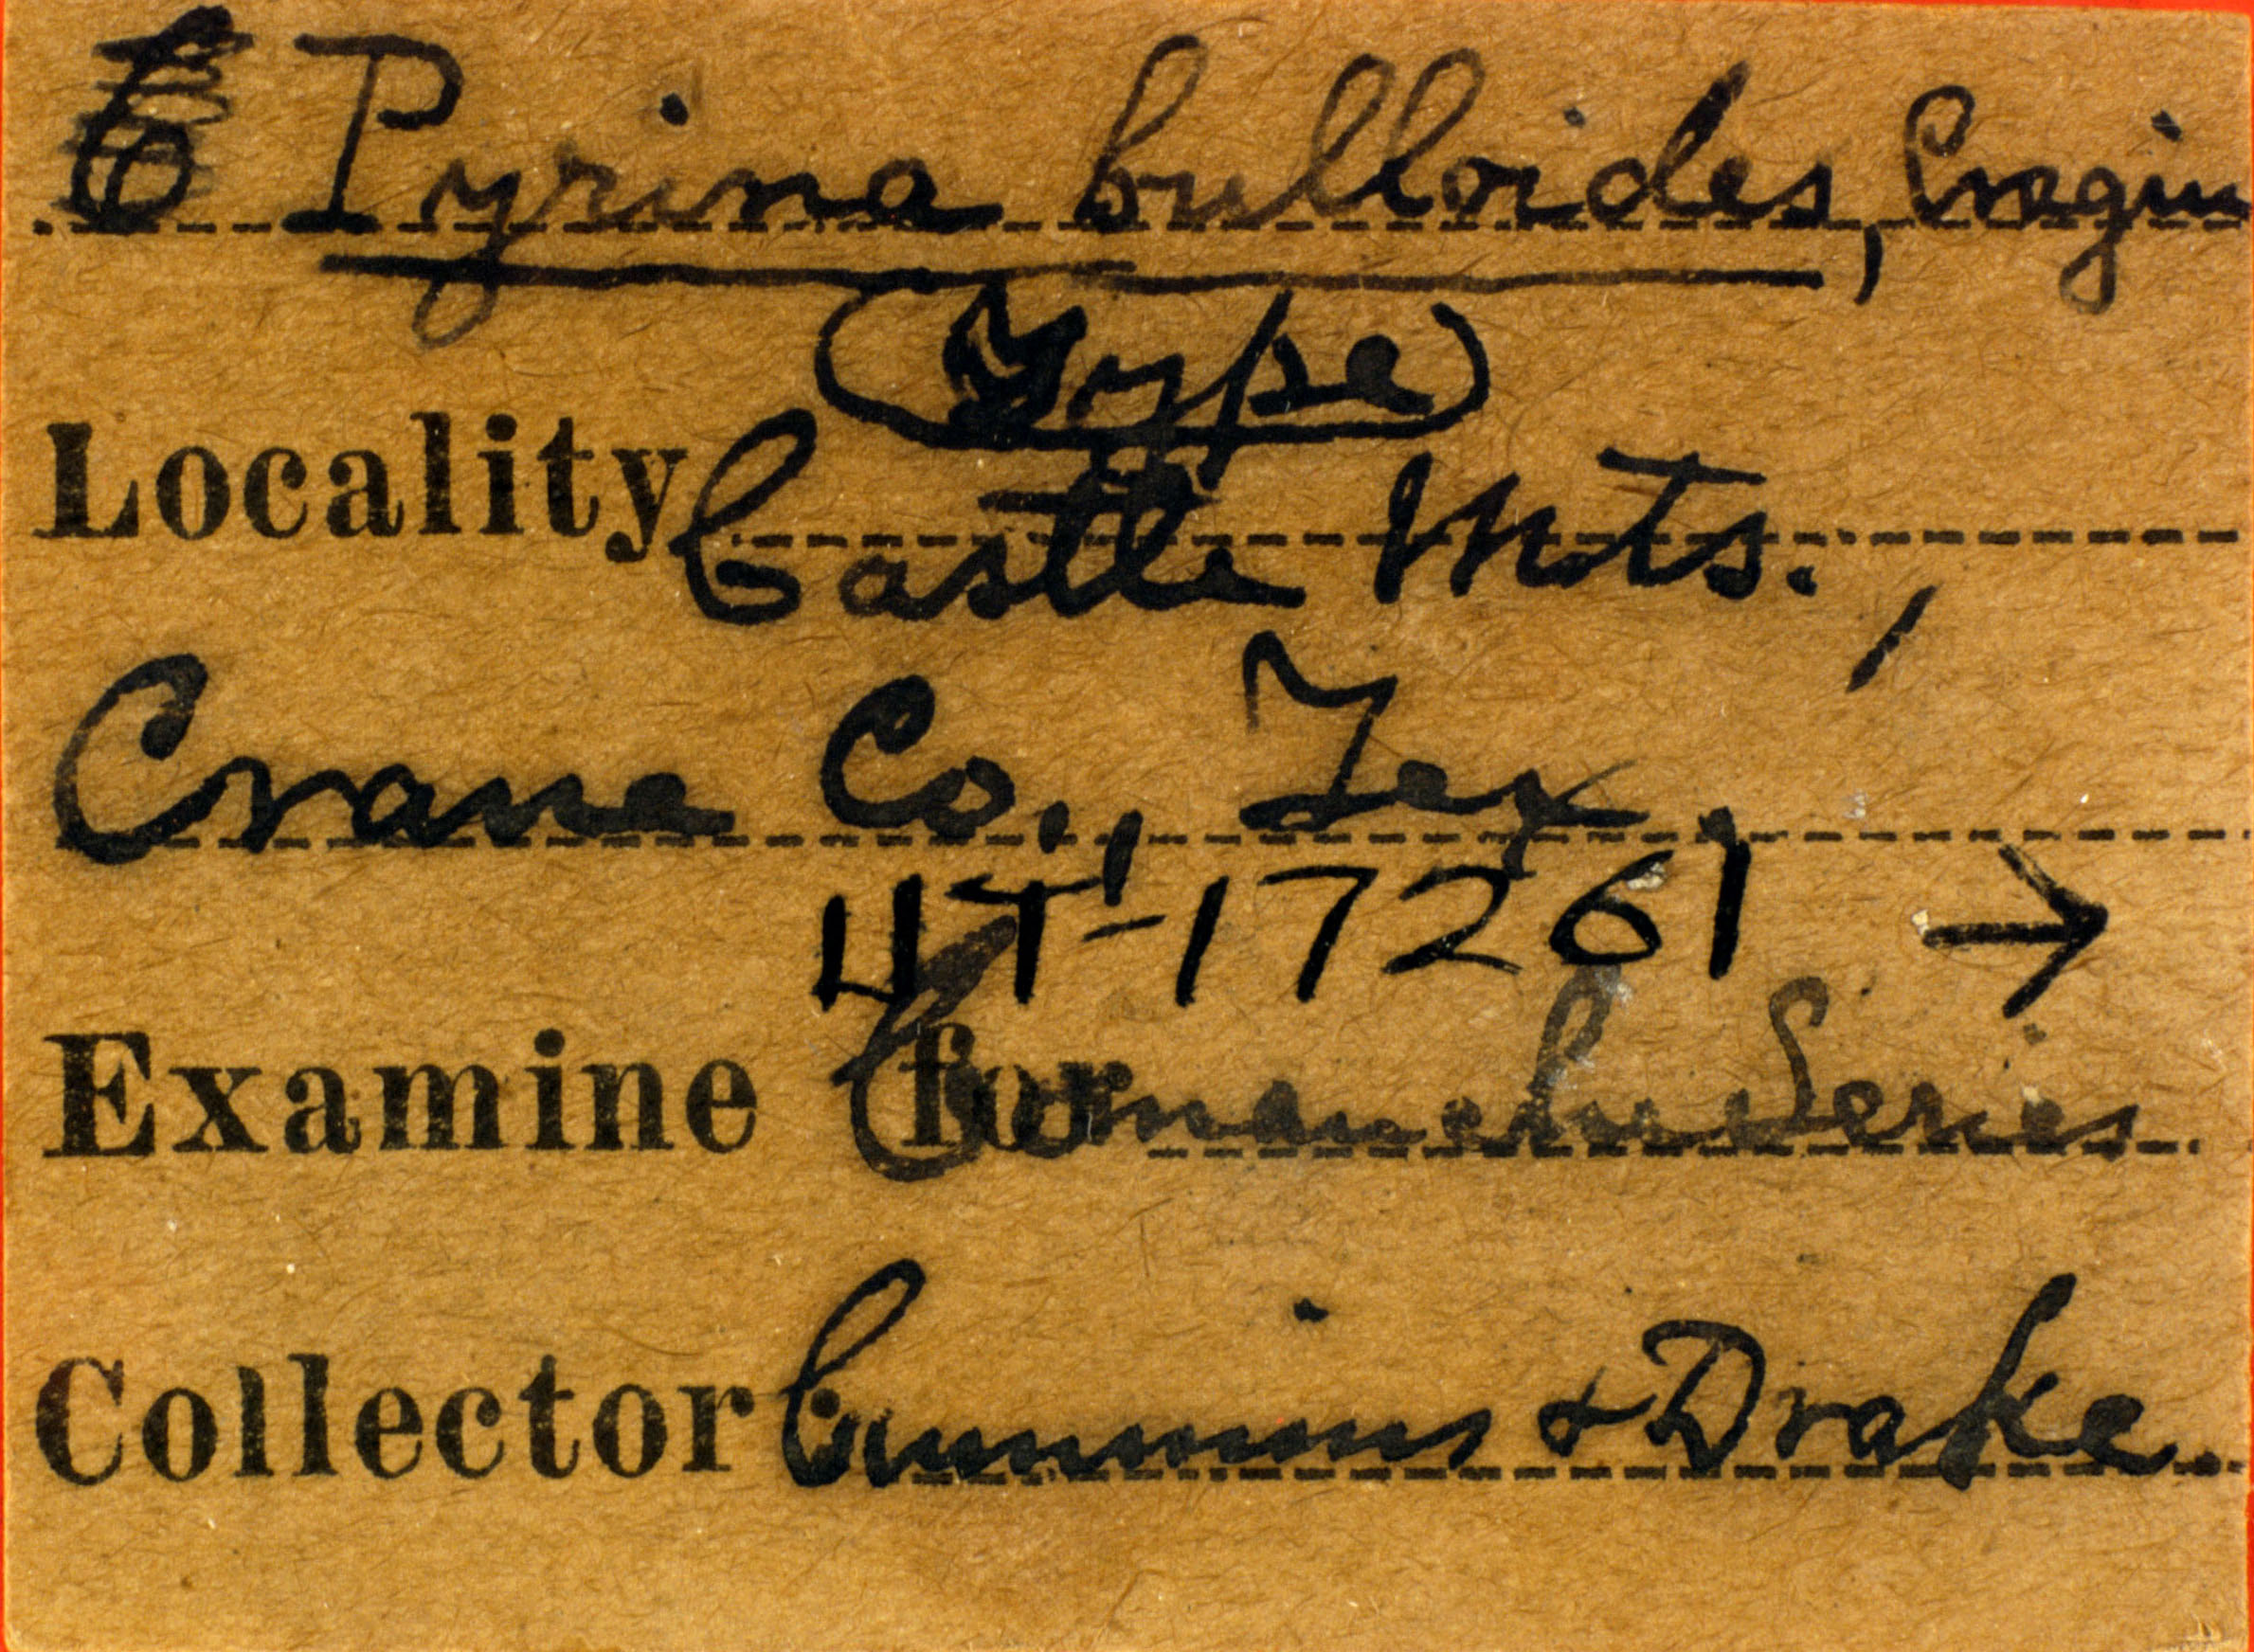 Pyrina bulloides, Cragin
(Type)
Locality Castle Mts.,
Crane Co., Tex,
UT-17261 →
Examine for Comanche Series
Collector Cummins & Drake.